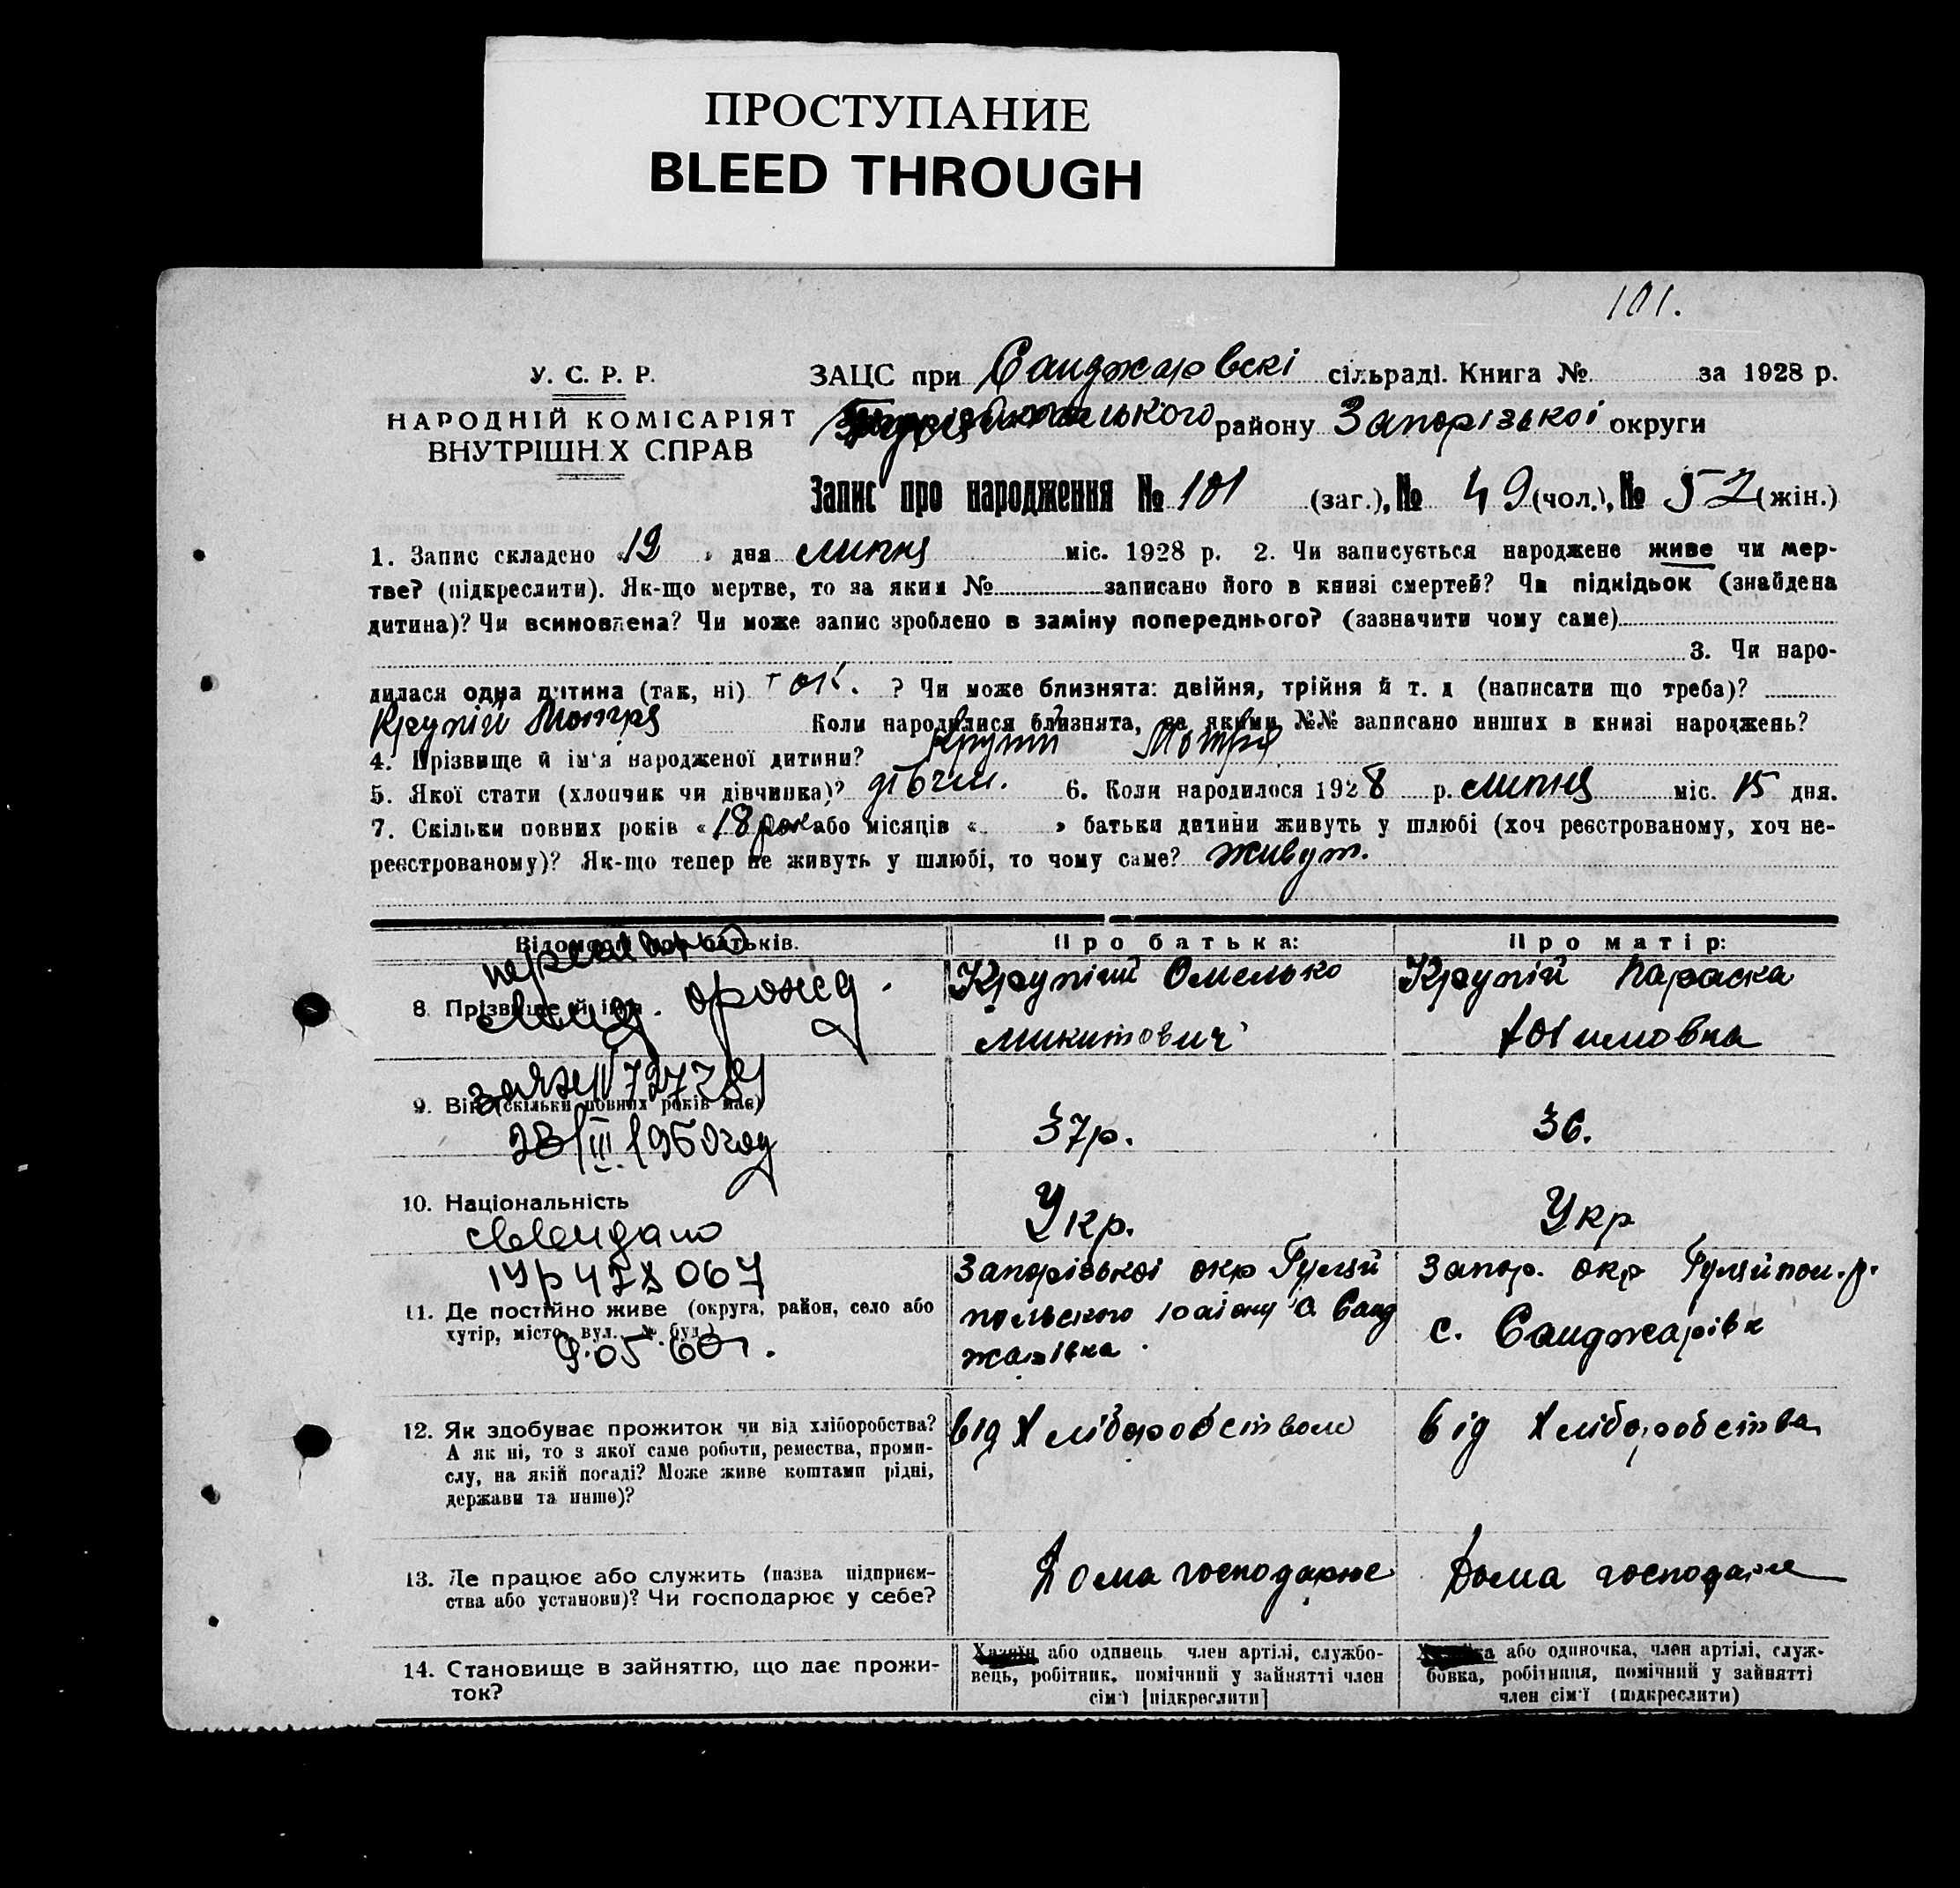 ПРОСТУПАНИЕ
BLEED THROUGH
101.
У. С. Р. Р.
НАРОДНІЙ КОМІСАРІЯТ
ВНУТРІШН Х СПРАВ
ЗАЦС при Санджаровскі сільраді. Книга № за 1928 р.
району Запорізькоі округи
Запис про народження № 101 (заг.), № 49 (чол.), № 52 (жін.)
1. Запис складено «19» дня липня міс. 1928 р. 2. Чи записується народжене живе чи мер-
тве? (підкреслити). Як-що мертве, то за яким № записано його в книзі смертей? Чи підкідьок (знайдена
дитина)? Чи всиновлена? Чи може запис зроблено в заміну попереднього? (зазначити чому саме)
3. Чи наро-
дилася одна дитина (так, ні) ? Чи може близнята: двійня, трійня й т. д (написати що треба)?
Крупій Мотря Коли народилися близнята, за якими №№ записано инших в книзі народжень?
4. Прізвище й ім'я народженої дитини? Крупій Мотря
5. Якої стати (хлопчик чи дівчинка)? дівчи. 6. Коли народилося 1928 р. липня міс. 15 дня.
7. Скільки повних років «18 рок або місяців « » батьки дитини живуть у шлюбі (хоч реєстрованому, хоч не-
реєстрованому)? Як-що тепер не живуть у шлюбі, то чому саме? живут.
Відомості про батьків. Про батька: Про матір:
8. Прізвище й ім'я Крупіий Омелько Микитович Крупій Параска
9. Вік (скільки повних років має) 37р. 36.
28/III 1960 год
10. Національність Укр. Укр
9.05 60 г.
11. Де постійно живе (округа, район, село або
хутір, місто, вул., № буд.)
Запорізькоі окр Гуляй
польского С Санд
жарівка
Запор. окр Гуляйпол. р.
с. Санджарівк
12. Як здобуває прожиток чи від хліборобства?
А як ні, то з якої саме роботи, ремества, проми-
слу, на якій посаді? Може живе коштами рідні,
держави та инше)?
від Хліборобством від Хліборобства
13. Де працює або служить (назва підприєм-
ства або установи)? Чи господарює у себе?
Дома господарює Дома господарює
14. Становище в зайняттю, що дає прожи-
ток?
Хазяїн або одинець, член артілі, службо-
вець, робітник, помічний у зайнятті член
сім'ї [підкреслити]
або одиночка, член артілі, служ-
бовка, робітниця, помічний у зайнятті
член сім'ї (підкреслити)